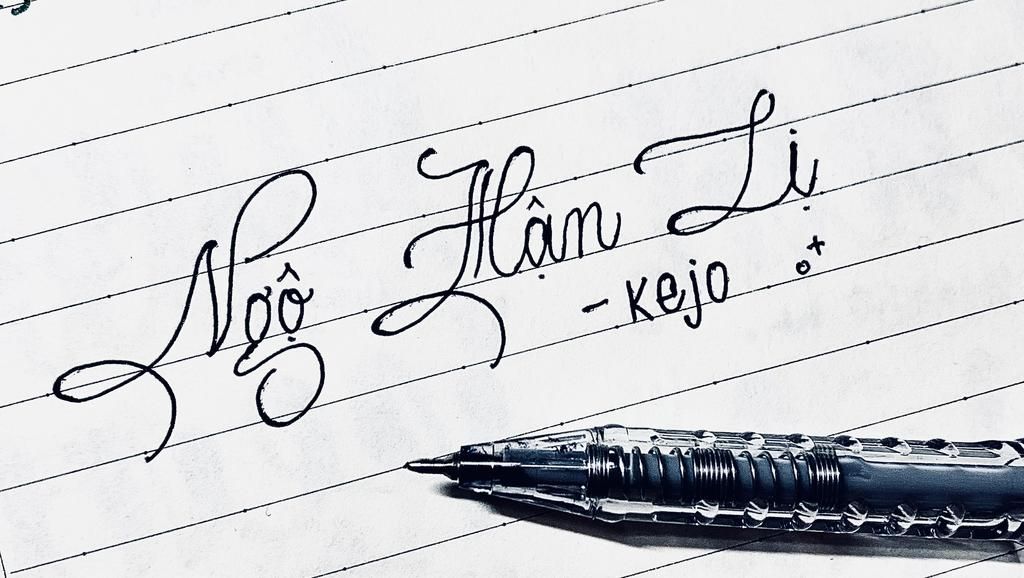 Ngộ Hận Lị
-Kejo